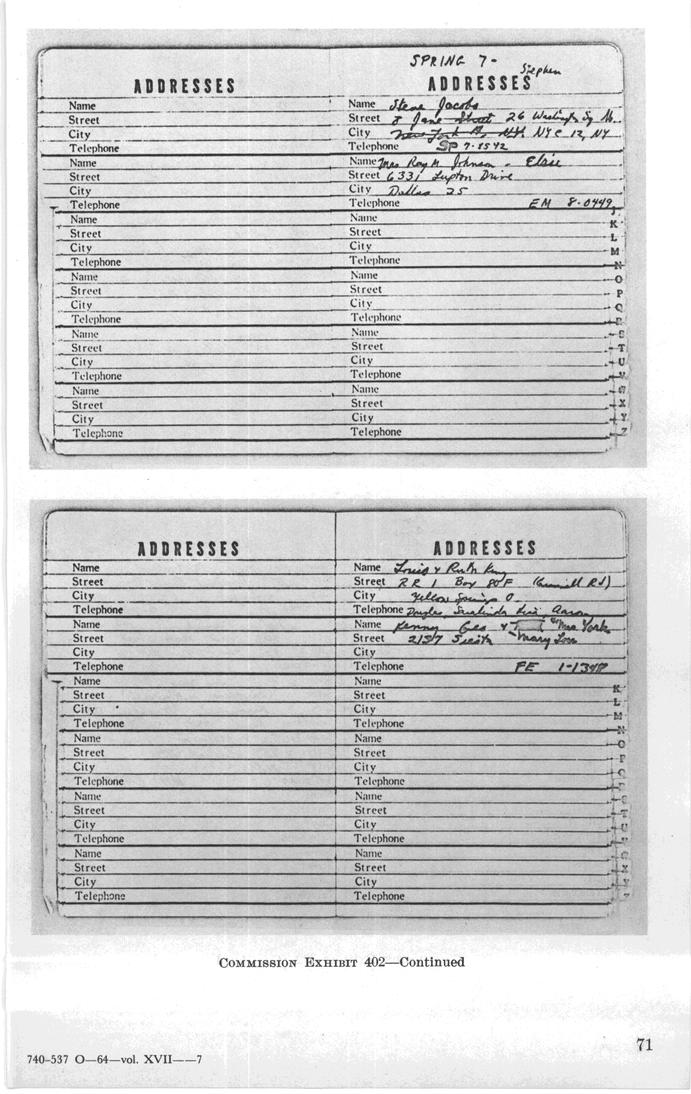 SPRING 7-
Stephen
ADDRESSES
ADDRESSES
Name
Street
City
Telephone
Name
Street
City
Telephone
Name
Street
City
Telephone
Name
Street
City
Telephone
Name
Street
City
Telephone
Name
Street
City
Telephone
Name Steve Jacobs
Street 8 Jane Street 26 Washington Sq No.
City New York NYC 12, NY
Telephone SP 7-1542
Name Mrs Roy M Johnson - Elsie
Street 6331 Lupton Drive
City Dallas 25
Telephone EM 8-0449
Name
Street
City
Telephone
Name
Street
City
Telephone
Name
Street
City
Telephone
Name
Street
City
Telephone
J
K
L
M
N
O
P
Q
R
S
T
U
V
W
X
Y
Z
ADDRESSES
ADDRESSES
Name
Street
City
Telephone
Name
Street
City
Telephone
Name
Street
City
Telephone
Name
Street
City
Telephone
Name
Street
City
Telephone
Name
Street
City
Telephone
Name Louis & Ruth King
Street RR 1 Box 80F
City Yellow Springs O.
Telephone Aaron
Name Kenny Geo &
Street 2157 Siesta Mary Lou
City
Telephone FE 1-1348
Name
Street
City
Telephone
Name
Street
City
Telephone
Name
Street
City
Telephone
Name
Street
City
Telephone
K
L
M
N
O
P
COMMISSION EXHIBIT 402—Continued
71
740-537 O—64—vol. XVII——7